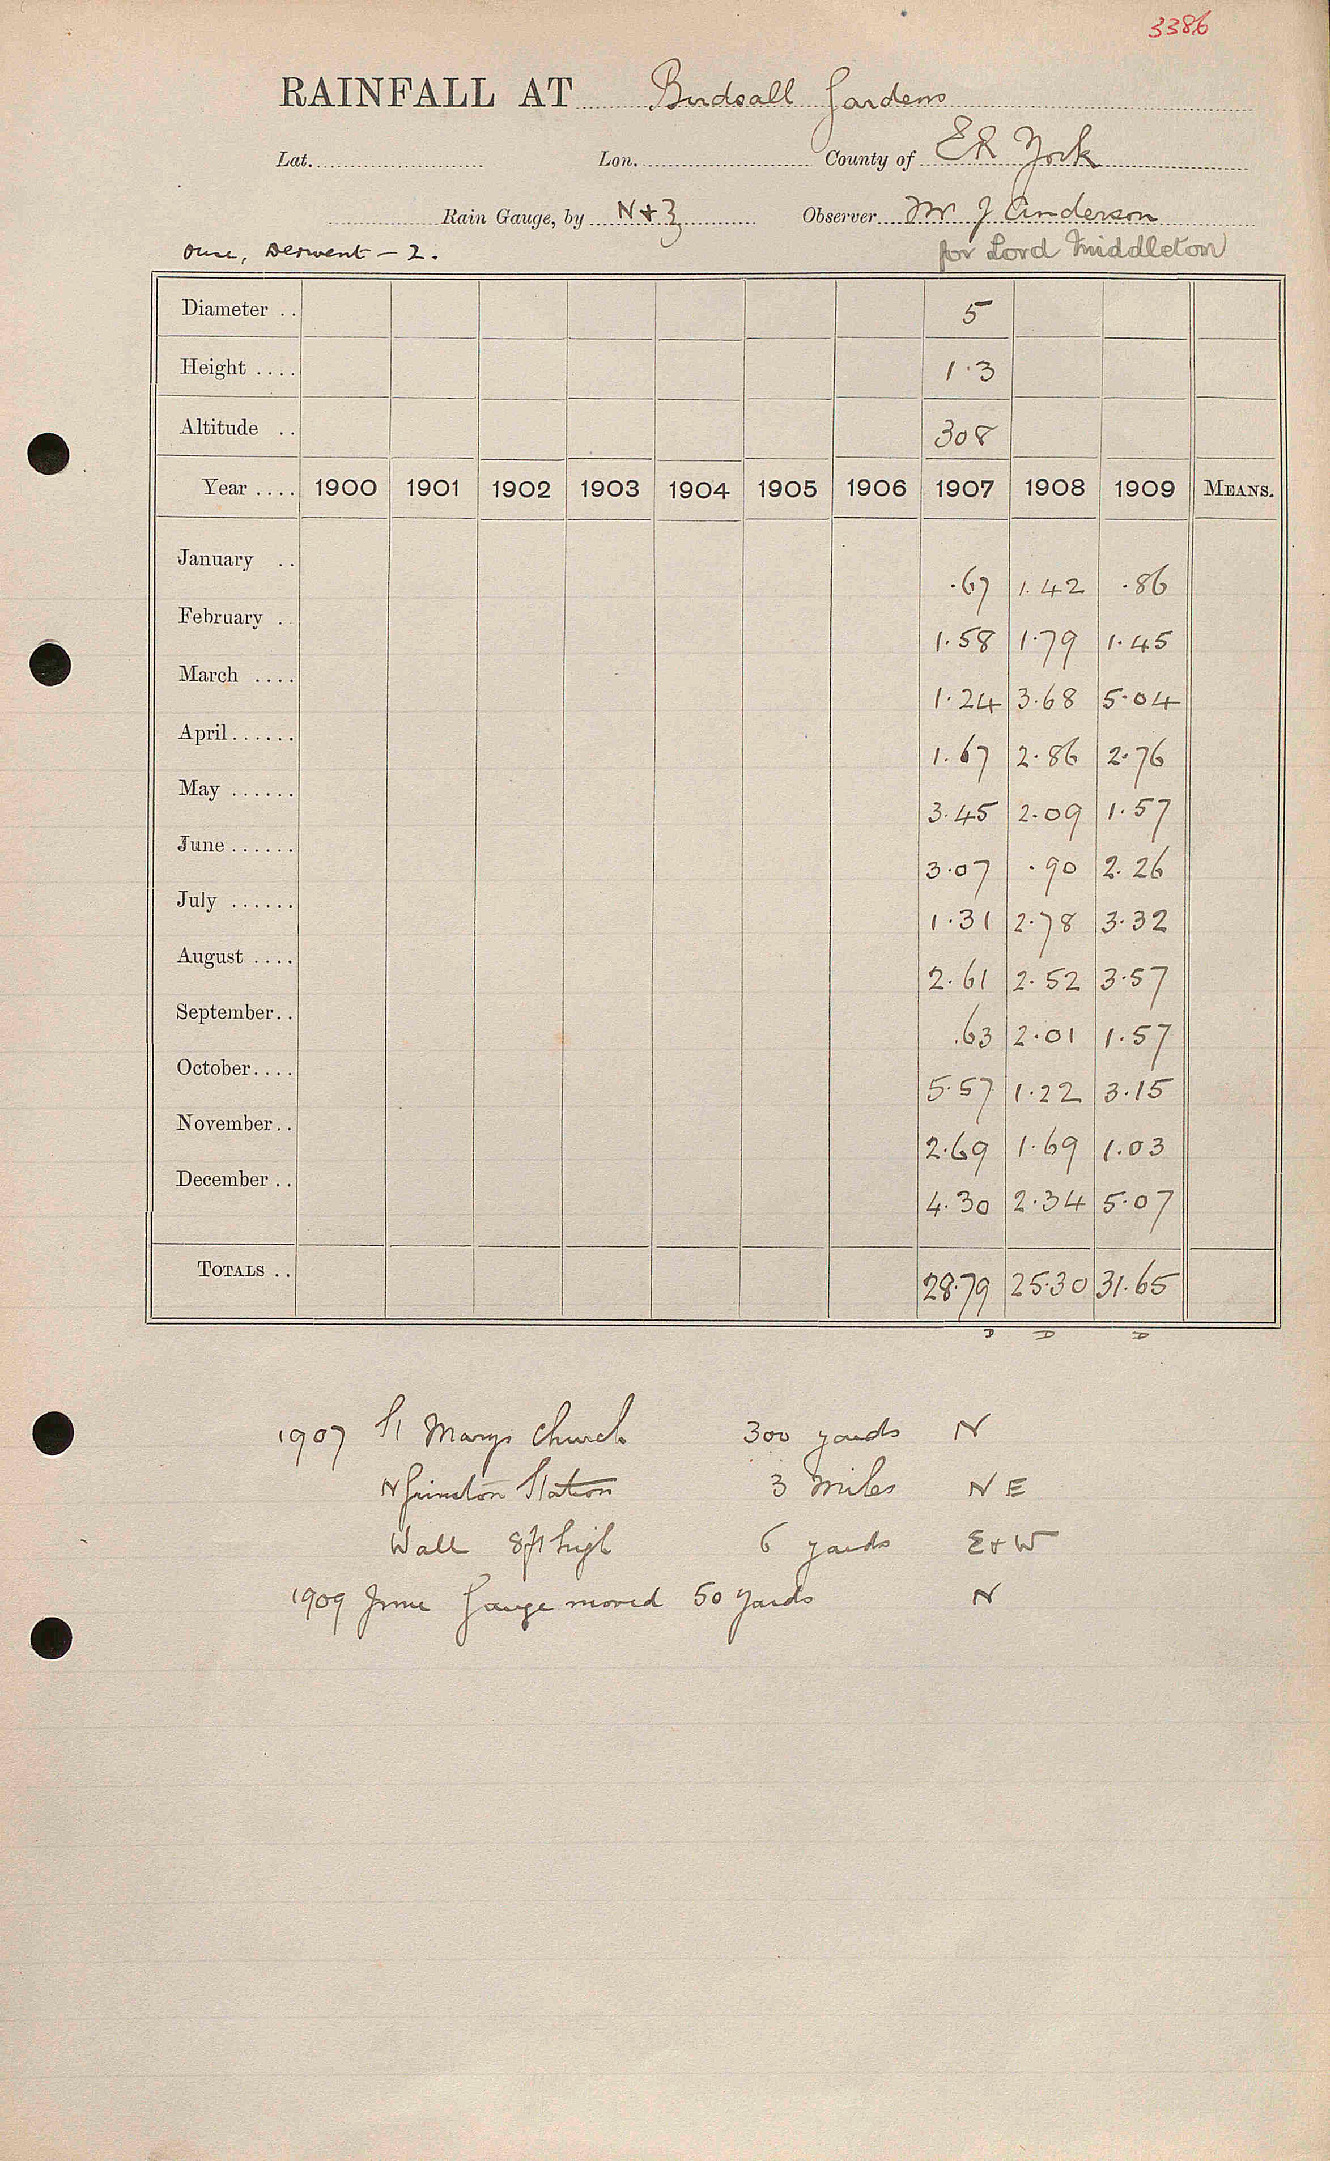 3386
RAINFALL AT Birdsall Gardens
Lat. Lon. County of ER York
Rain Gauge, by N+Z Observer Mr J Anderson
Ouse, Derwent - 2. for Lord Middleton
Diameter .. 5
Height .... 1.3
Altitude .. 308
Year .... 1900 1901 1902 1903 1904 1905 1906 1907 1908 1909 MEANS.
January .. .67 1.42 .86
February .. 1.58 1.79 1.45
March .... 1.24 3.68 5.04
April...... 1.67 2.86 2.76
May ...... 3.45 2.09 1.57
June ...... 3.07 .90 2.26
July ...... 1.31 2.78 3.32
August .... 2.61 2.52 3.57
September.. .63 2.01 1.57
October.... 5.57 1.22 3.15
November.. 2.69 1.69 1.03
December .. 4.30 2.34 5.07
TOTALS .. 28.79 25.30 31.65
D D D
1907 St Marys Church 300 yards N
N Grimston Station 3 Miles N E
Wall 8ft high 6 yards E+W
1909 June Gauge moved 50 yards N